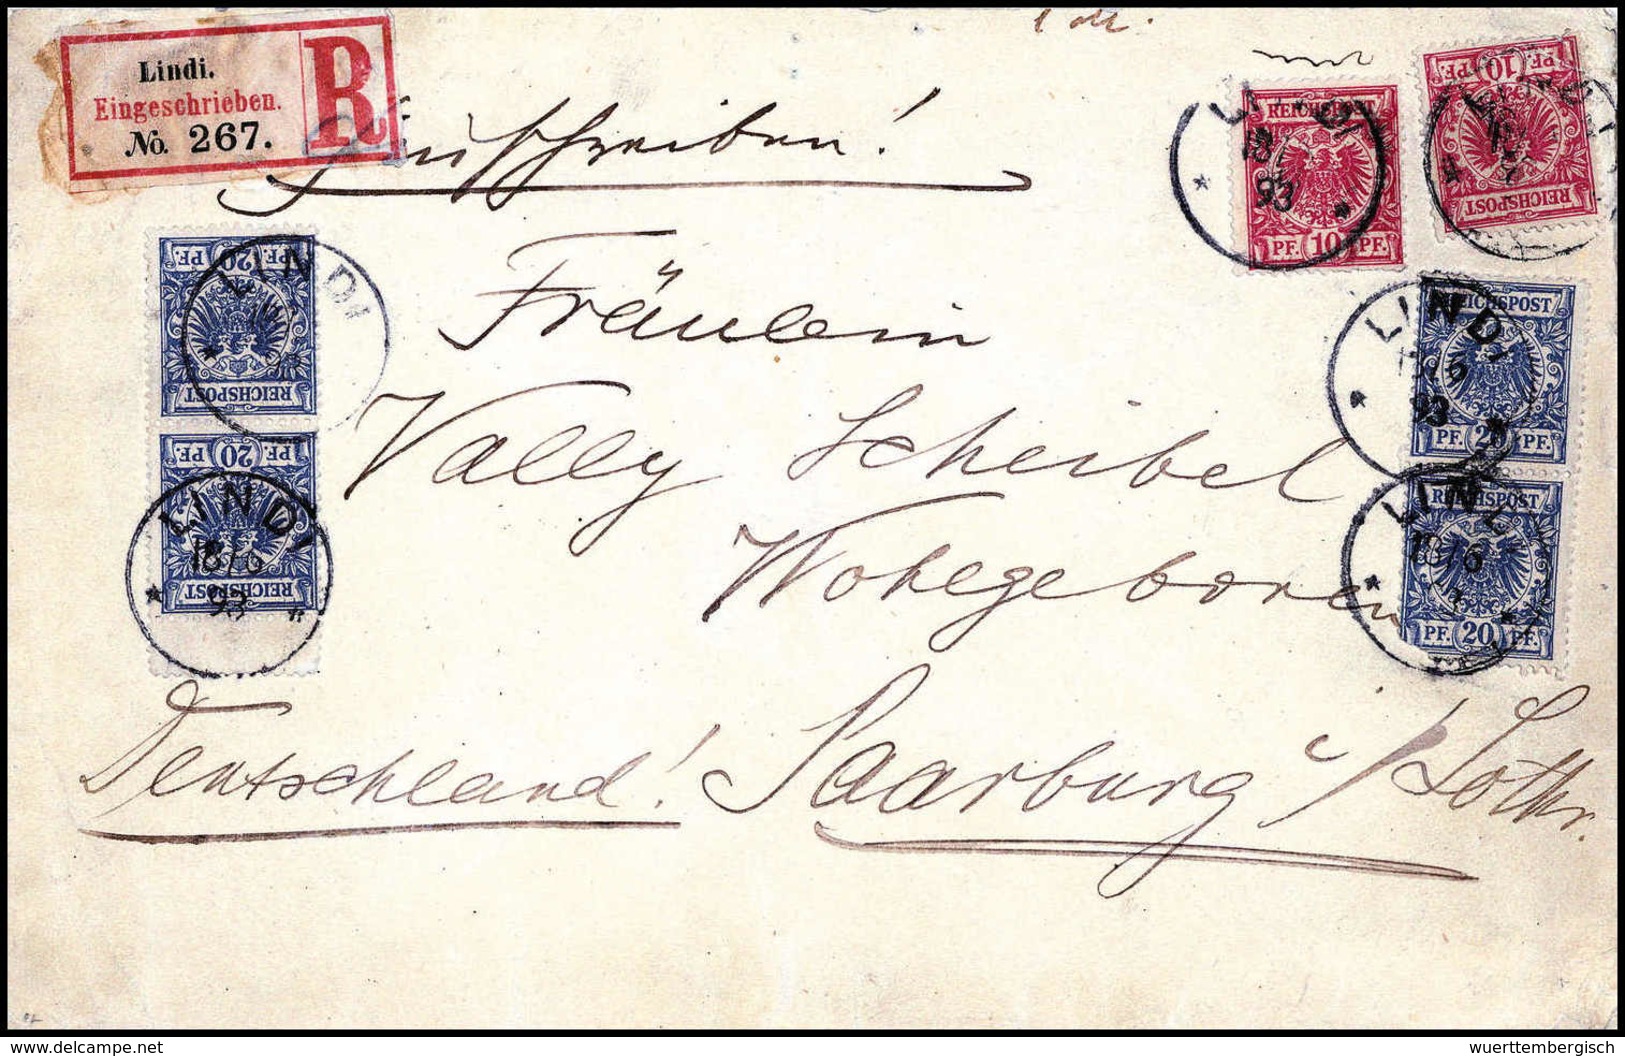 1 M.
Lindi.
Eingeschrieben.
No. 267.
R
Einschreiben!
REICHSPOST
PF. 10 PF.
LINDI
18
93
PF. 10 PF.
REICHSPOST
LINDI
PF. 20 PF.
REICHSPOST
LINDI
PF. 20 PF.
REICHSPOST
LINDI
18/6
93
REICHSPOST
PF. 20 PF.
LINDI
18/6
93
REICHSPOST
PF. 20 PF.
LINDI
18/6
Fräulein
Vally Scheibel
Wohlgeboren
Deutschland! Saarburg i/Lothr.
wuerttembergisch